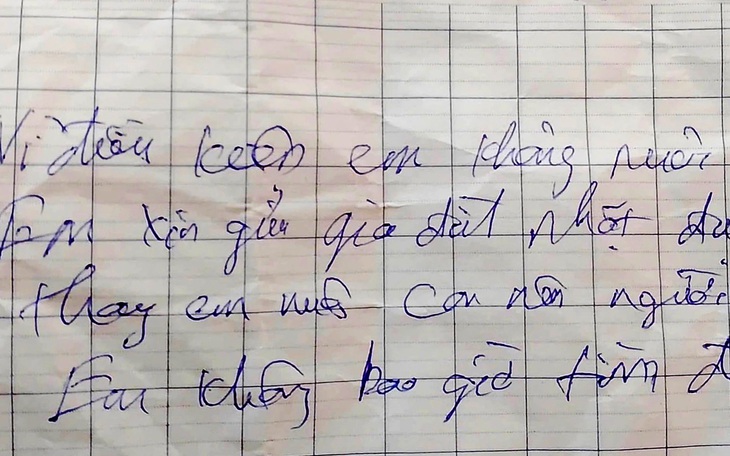 Vì điều kiện em không nuôi
Em xin gửi gia đình nhặt đư
thay em nuôi con nên người
Em không bao giờ tìm đ